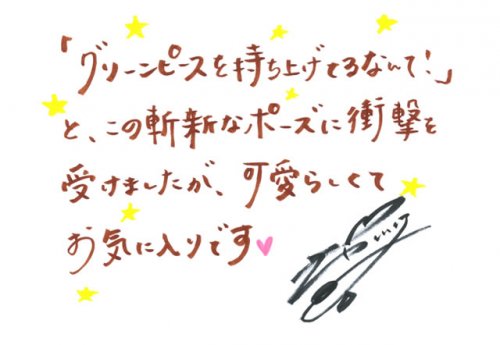 「グリーンピースを持ち上げてるなんて!」
と、この斬新なポーズに衝撃を
受けましたが、可愛らしくて
お気に入りです